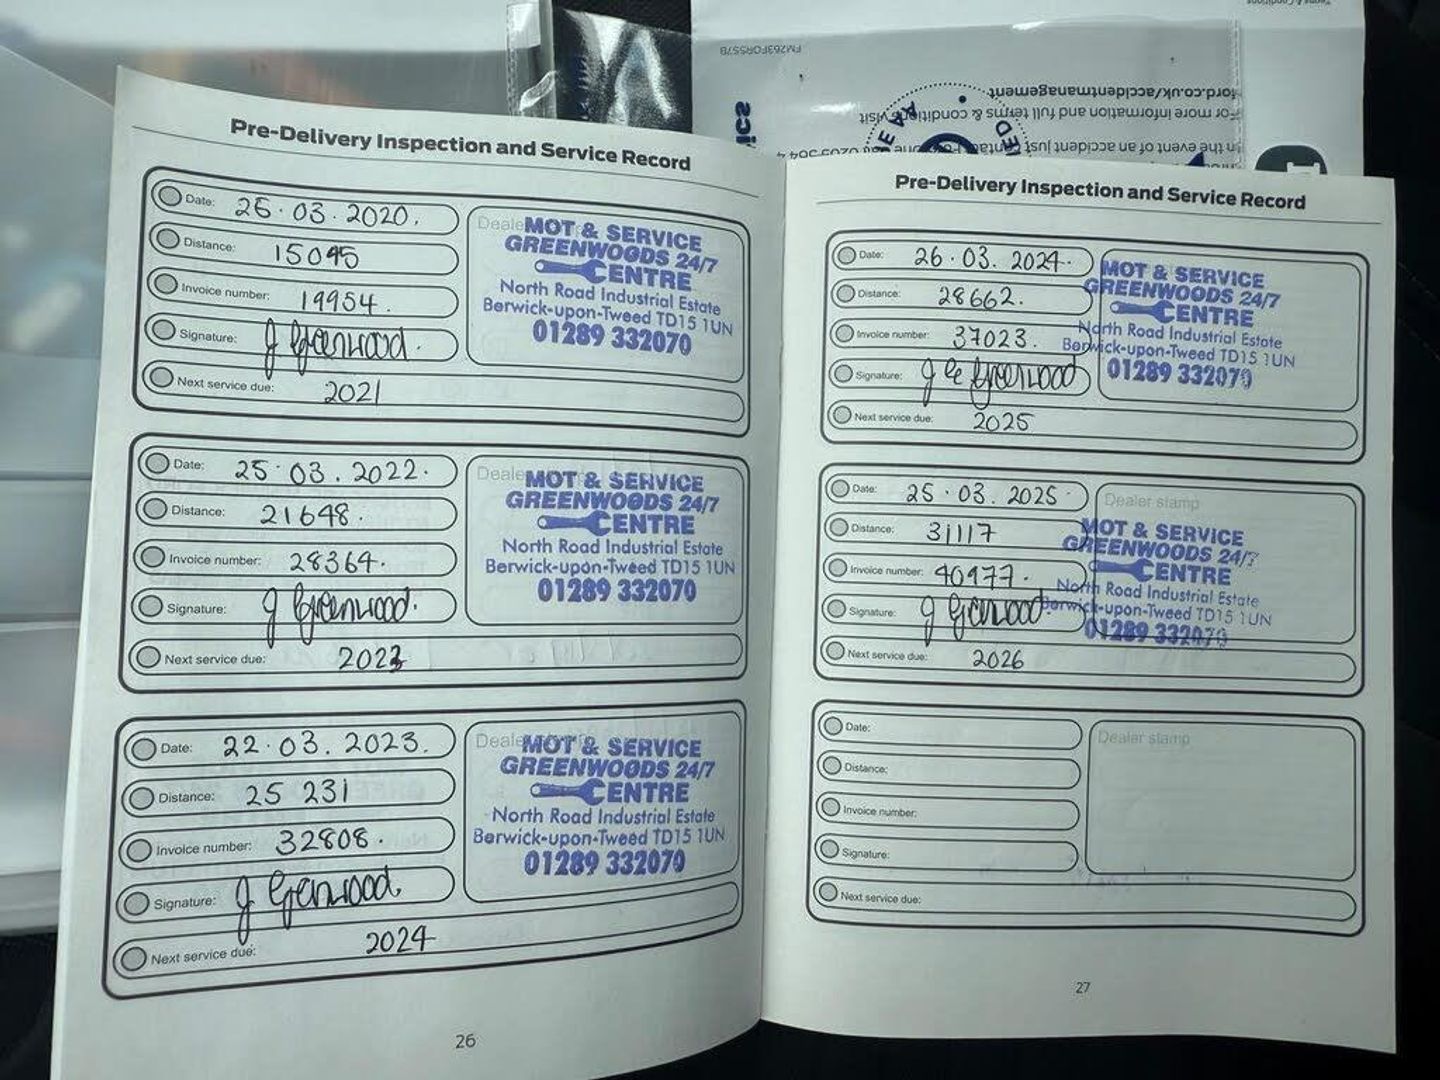 Terms & Conditions
FM263FORS57B
ford.co.uk/accidentmanagement
For more information and full terms & conditions visit
In the event of an accident just contact
ics
Pre-Delivery Inspection and Service Record
Date: 26.03.2020.
Distance: 15045
Invoice number: 19954.
Signature: J Greenwood.
Next service due: 2021
MOT & SERVICE
GREENWOODS 24/7
CENTRE
North Road Industrial Estate
Berwick-upon-Tweed TD15 1UN
01289 332070
Date: 25.03.2022.
Distance: 21648.
Invoice number: 28364.
Signature: J Greenwood.
Next service due: 2023
Dealer
MOT & SERVICE
GREENWOODS 24/7
CENTRE
North Road Industrial Estate
Berwick-upon-Tweed TD15 1UN
01289 332070
Date: 22.03.2023.
Distance: 25 231
Invoice number: 32808.
Signature: J Greenwood
Next service due: 2024
Dealer
MOT & SERVICE
GREENWOODS 24/7
CENTRE
North Road Industrial Estate
Berwick-upon-Tweed TD15 1UN
01289 332070
26
Pre-Delivery Inspection and Service Record
Date: 26.03.2024.
Distance: 28662.
Invoice number: 37023.
Signature: J G Greenwood
Next service due: 2025
MOT & SERVICE
GREENWOODS 24/7
CENTRE
North Road Industrial Estate
Berwick-upon-Tweed TD15 1UN
01289 332070
Date: 25.03.2025.
Distance: 31117
Invoice number: 40977.
Signature: J Greenwood.
Next service due: 2026
Dealer stamp
MOT & SERVICE
GREENWOODS 24/7
CENTRE
North Road Industrial Estate
Berwick-upon-Tweed TD15 1UN
01289 332070
Date:
Distance:
Invoice number:
Signature:
Next service due:
Dealer stamp
27